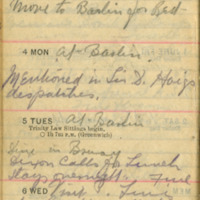 Move to Barlin for Red-
4 MON At Barlin.
Mentioned in Sir D. Haig's
despatches.
5 TUES At Barlin
Trinity Law Sittings begin.
1h. 7m. P.M. (Greenwich)
Dine in
calls for lunch
Stays overnight. Fine
6 WED